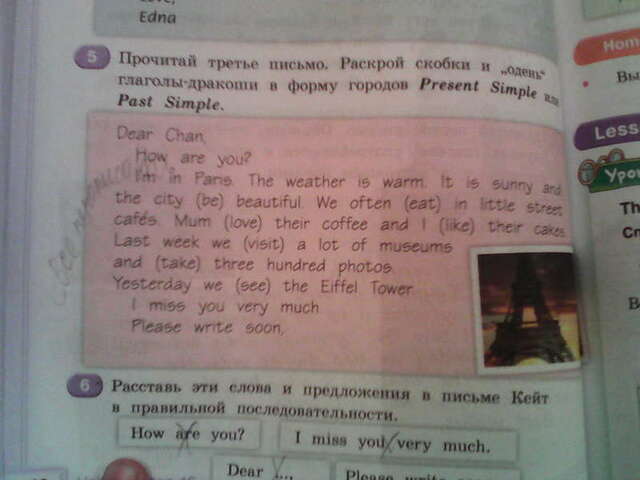 Edna
5 Прочитай третье письмо. Раскрой скобки и „одень“
глаголы-дракоши в форму городов Present Simple или
Past Simple.
Dear Chan,
How are you?
I'm in Paris. The weather is warm. It is sunny and
the city (be) beautiful. We often (eat) in little street
cafés. Mum (love) their coffee and I (like) their cakes.
Last week we (visit) a lot of museums
and (take) three hundred photos.
Yesterday we (see) the Eiffel Tower.
I miss you very much.
Please write soon,
6 Расставь эти слова и предложения в письме Кейт
в правильной последовательности.
How are you?
I miss you very much.
Dear ...,
Please write
Hom
Вы
Less
Уро
Th